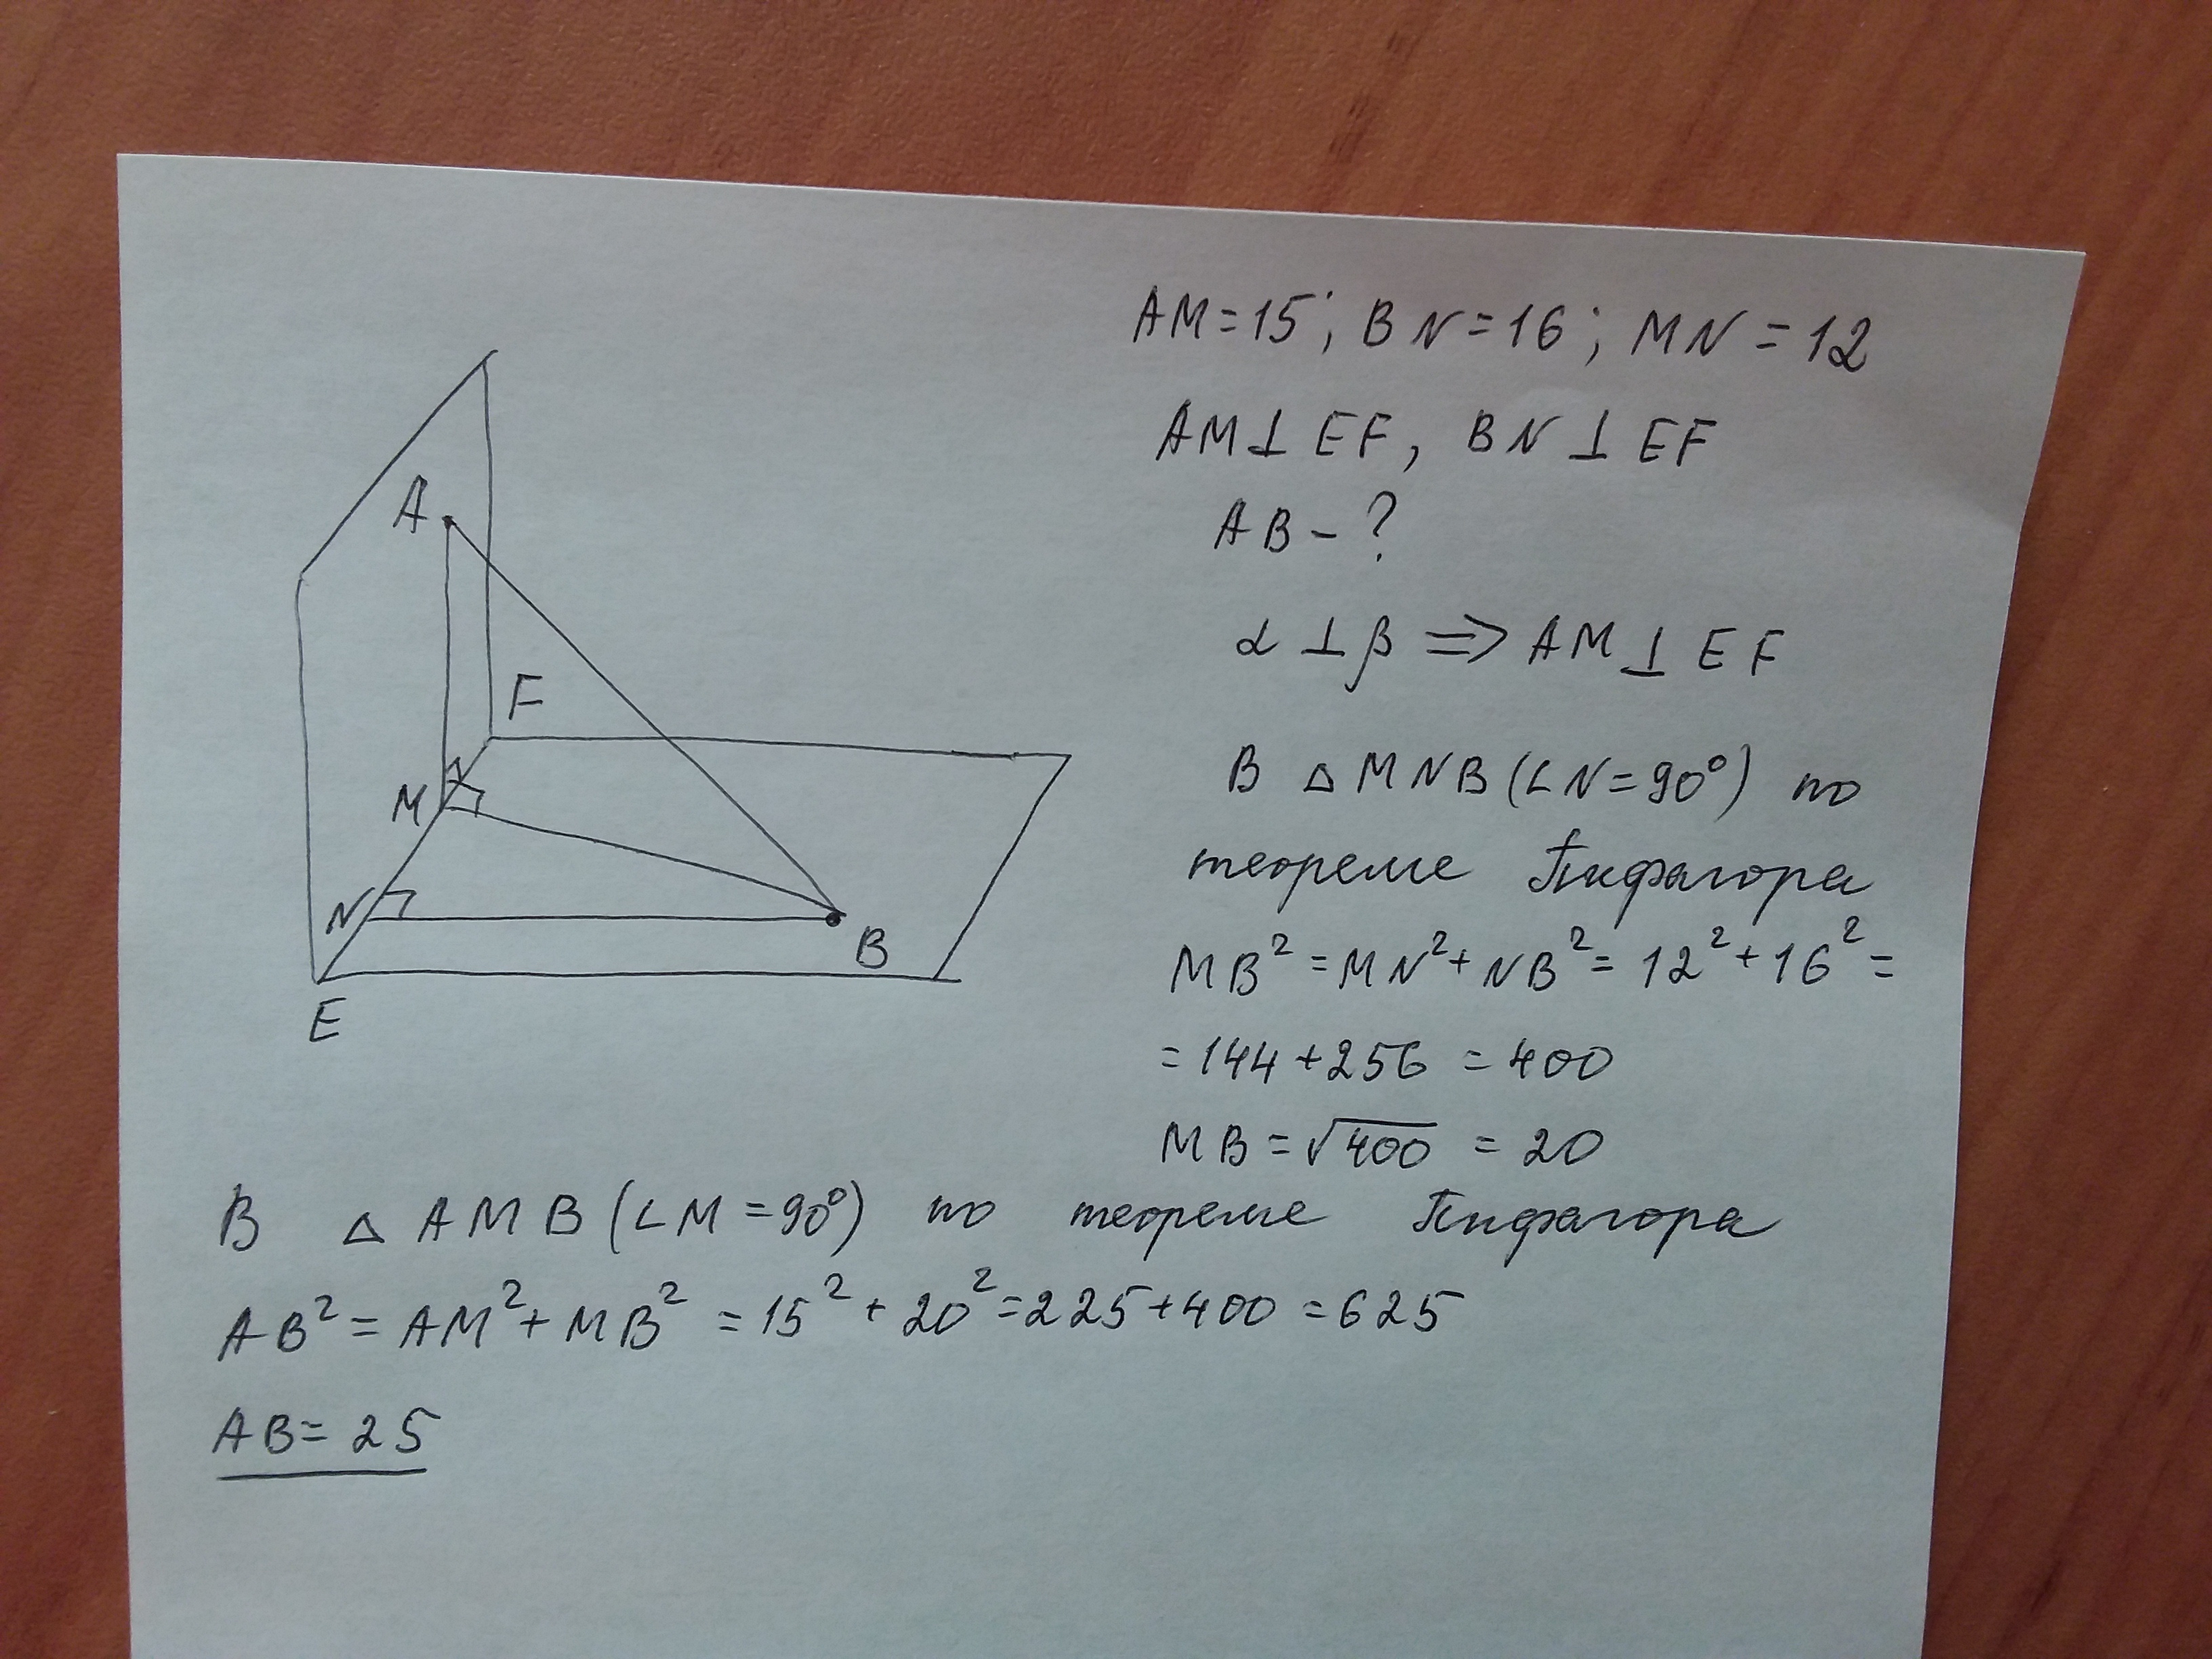 AM=15; BN=16; MN=12
AM⊥EF, BN⊥EF
AB-?
α⊥β => AM⊥EF
A
F
M
N
B
E
В △MNB(∠N=90°) по
теореме Пифагора
MB²=MN²+NB²=12²+16²=
=144+256=400
MB=√400=20
В △AMB(∠M=90°) по теореме Пифагора
AB²=AM²+MB²=15²+20²=225+400=625
AB=25